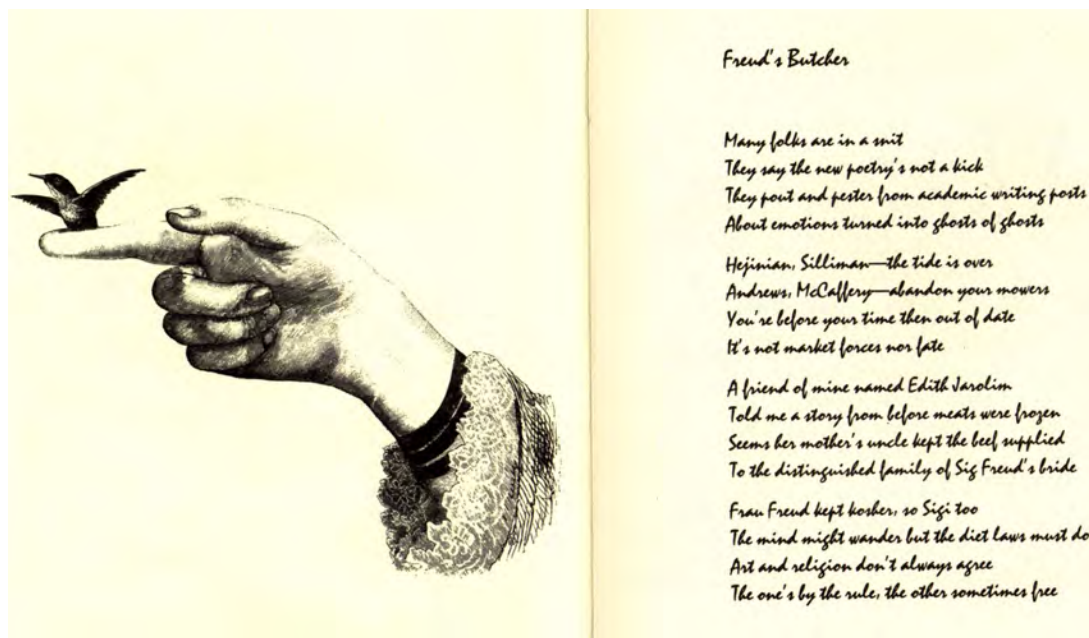 Freud's Butcher
Many folks are in a snit
They say the new poetry's not a kick
They pout and pester from academic writing posts
About emotions turned into ghosts of ghosts
Hejinian, Silliman—the tide is over
Andrews, McCaffery—abandon your mowers
You're before your time then out of date
It's not market forces nor fate
A friend of mine named Edith Jarolim
Told me a story from before meats were frozen
Seems her mother's uncle kept the beef supplied
To the distinguished family of Sig Freud's bride
Frau Freud kept kosher, so Sigi too
The mind might wander but the diet laws must do
Art and religion don't always agree
The one's by the rule, the other sometimes free